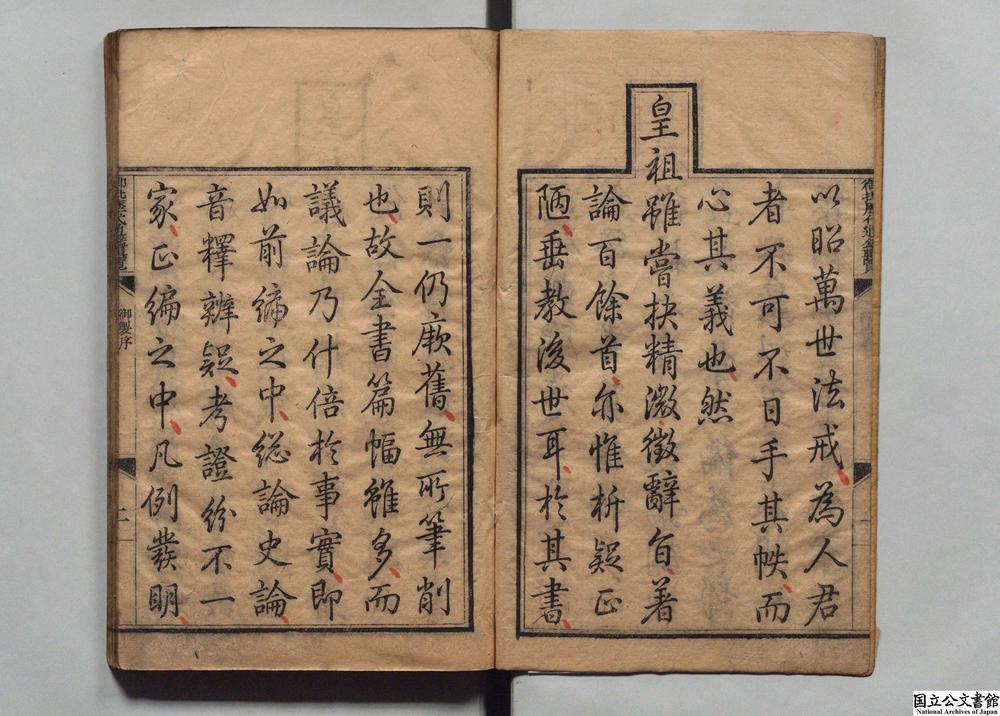 以昭萬世法戒為人君
者不可不日手其帙而
心其義也然
皇祖雖嘗抉精微徵辭旨著
論百餘首亦惟析疑正
陋垂教後世耳於其書
御批歷代通鑑輯覽
則一仍厥舊無所筆削
也故全書篇幅雖多而
議論乃什倍於事實即
如前編之中總論史論
音釋辨疑考證紛不一
家正編之中凡例發明
御批歷代通鑑輯覽
御製序
二
国立公文書館
National Archives of Japan